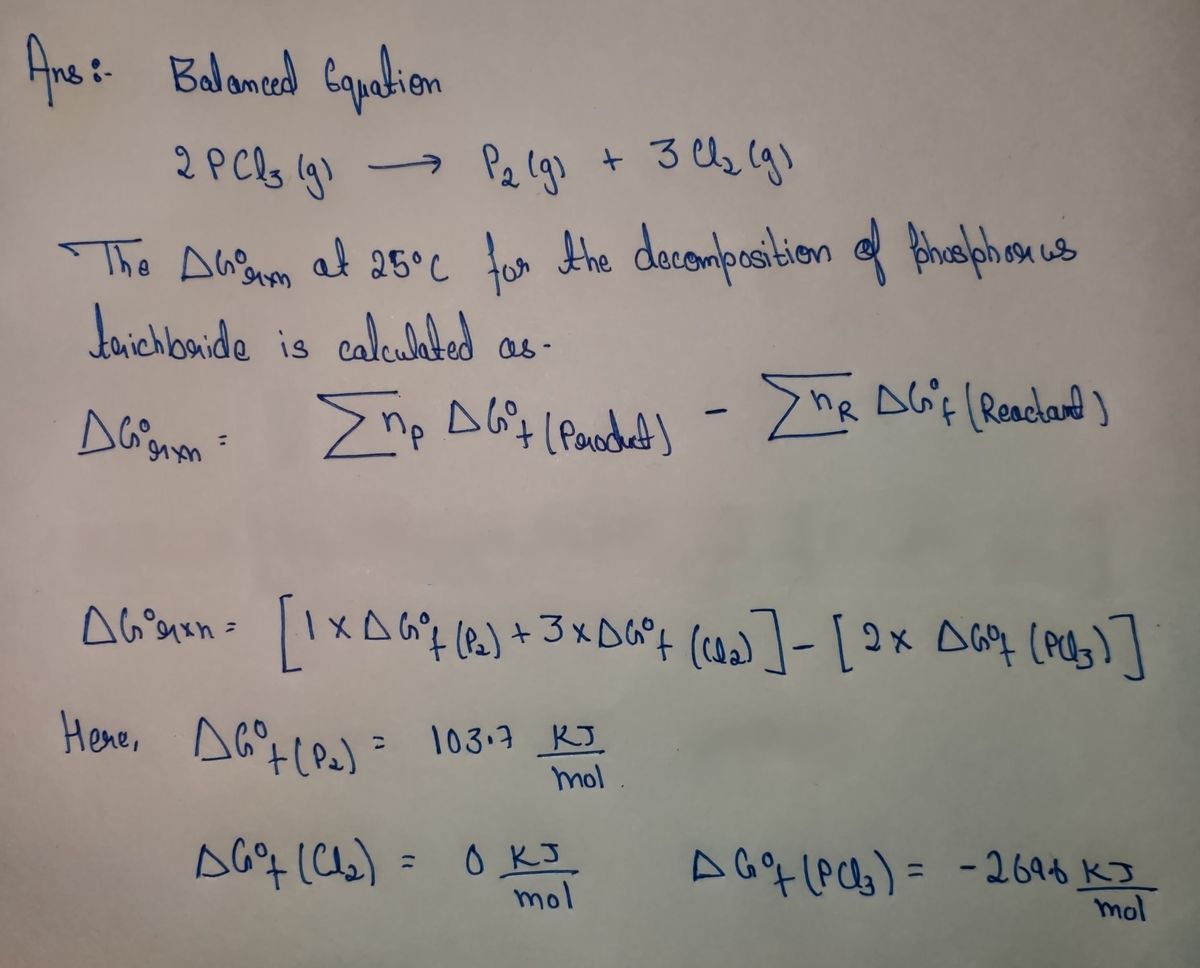 Ans :- Balanced Equation
2 PCl₃ (g) ⟶ P₂ (g) + 3 Cl₂ (g)
The ΔG°rxn at 25°C for the decomposition of phosphorus
trichloride is calculated as -
ΔG°rxn = ∑nP ΔG°f (Product) - ∑nR ΔG°f (Reactant)
ΔG°rxn = [1 × ΔG°f (P₂) + 3 × ΔG°f (Cl₂)] - [2 × ΔG°f (PCl₃)]
Here, ΔG°f (P₂) = 103.7 KJ/mol.
ΔG°f (Cl₂) = 0 KJ/mol ΔG°f (PCl₃) = KJ/mol